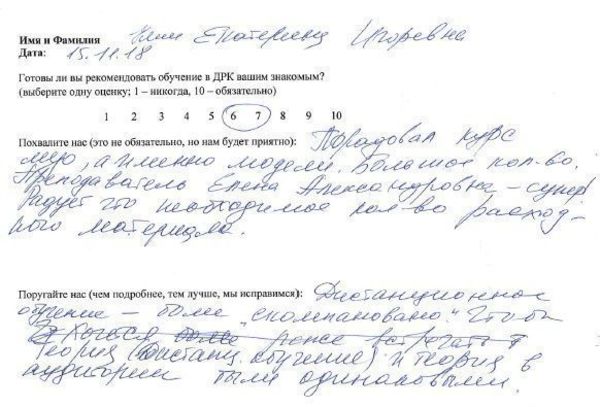 Имя и Фамилия Екатерина Игоревна
Дата: 15.11.18
Готовы ли вы рекомендовать обучение в ДРК вашим знакомым?
(выберите одну оценку; 1 – никогда, 10 – обязательно)
1 2 3 4 5 6 7 8 9 10
Похвалите нас (это не обязательно, но нам будет приятно): Порадовал курс
, а именно модели. Большое кол-во.
Преподаватель Елена Александровна – супер!
Радует что необходимое кол-во расход-
ного материала.
Поругайте нас (чем подробнее, тем лучше, мы исправимся): Дистанционное
обучение – более "скомпановано". Чтобы
Хотелось реже встречать
Теория (Дистанц. обучение) и теория в
аудитории были одинаковыми.